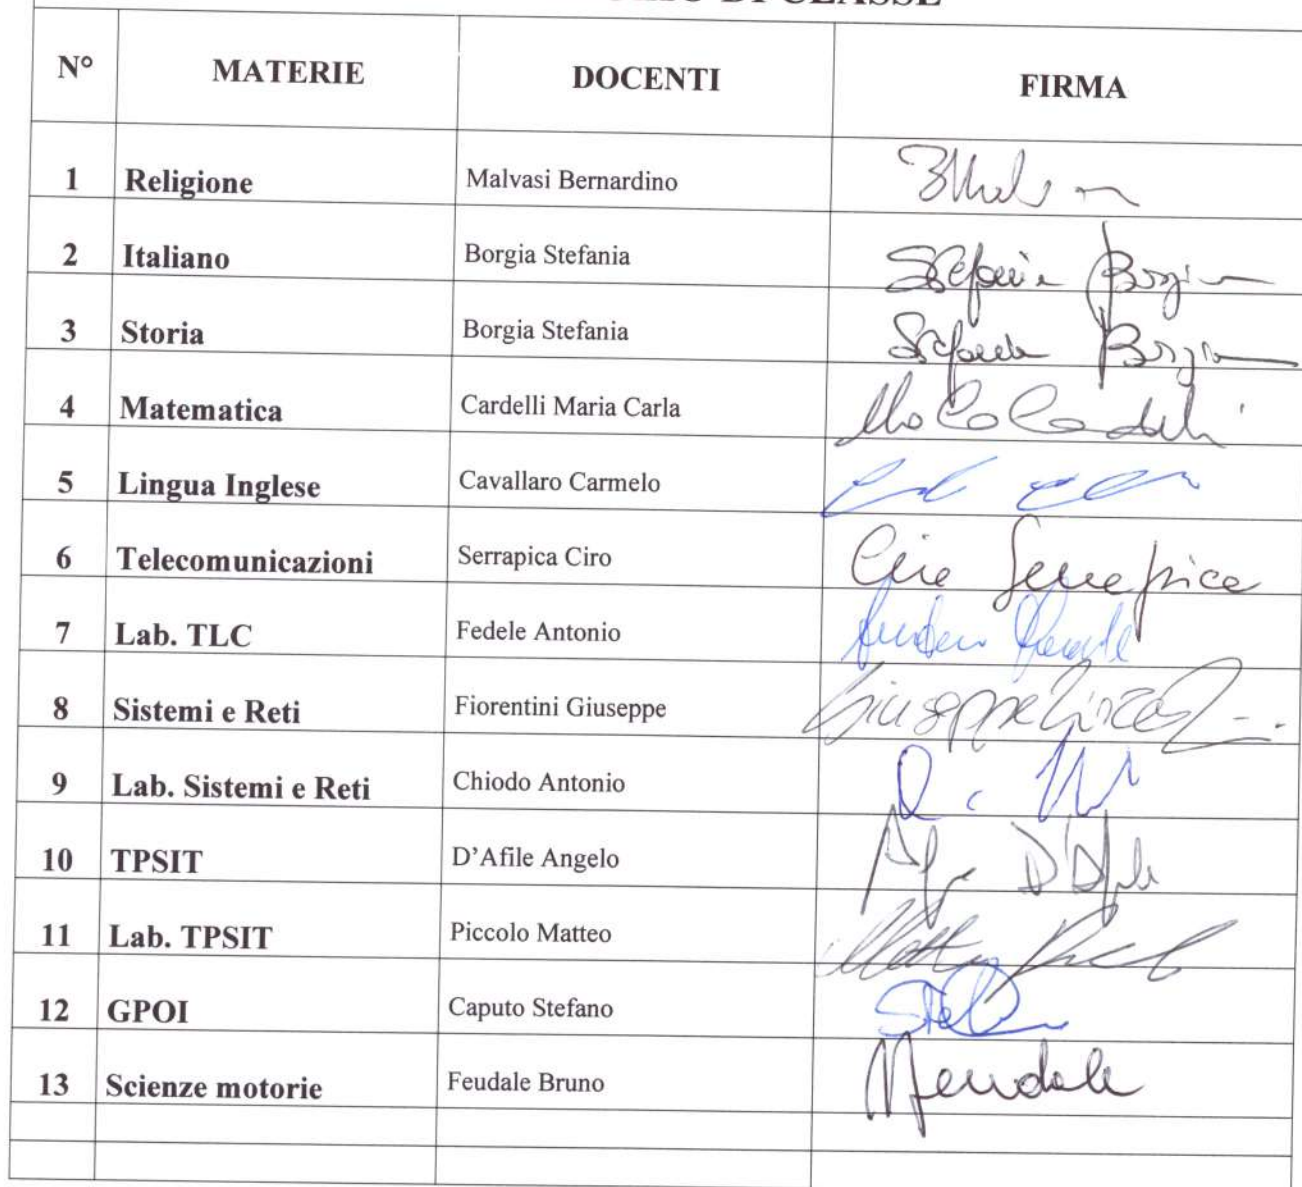 DI CLASSE
N° MATERIE DOCENTI FIRMA
1 Religione Malvasi Bernardino
2 Italiano Borgia Stefania Stefania Borgia
3 Storia Borgia Stefania Stefania Borgia
4 Matematica Cardelli Maria Carla
5 Lingua Inglese Cavallaro Carmelo
6 Telecomunicazioni Serrapica Ciro Ciro Serrapica
7 Lab. TLC Fedele Antonio
8 Sistemi e Reti Fiorentini Giuseppe Giuseppe
9 Lab. Sistemi e Reti Chiodo Antonio
10 TPSIT D'Afile Angelo
11 Lab. TPSIT Piccolo Matteo
12 GPOI Caputo Stefano
13 Scienze motorie Feudale Bruno